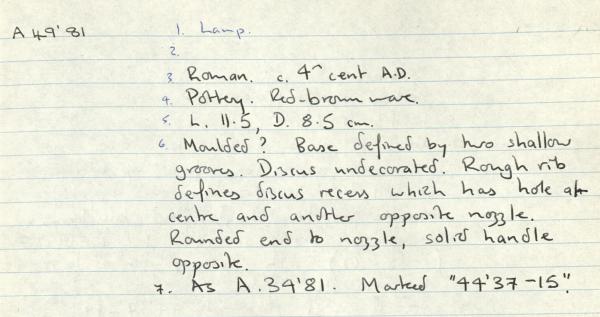 A 49'81 1. Lamp.
2.
3 Roman. c. 4^ cent A.D.
4. Pottery. Red-brown ware.
5. L. 11.5, D. 8.5 cm.
6. Moulded? Base defined by two shallow
grooves. Discus undecorated. Rough rib
defines discus recess which has hole at
centre and another opposite nozzle.
Rounded end to nozzle, solid handle
opposite.
7. As A.34'81. Marked "44'37-15".